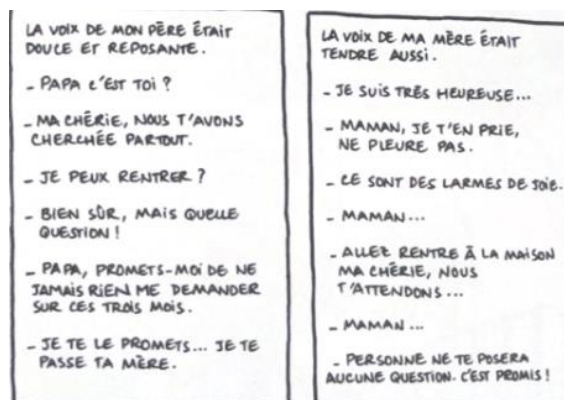 LA VOIX DE MON PÈRE ÉTAIT
DOUCE ET REPOSANTE.
- PAPA C'EST TOI ?
- MA CHÉRIE, NOUS T'AVONS
CHERCHÉE PARTOUT.
- JE PEUX RENTRER ?
- BIEN SÛR, MAIS QUELLE
QUESTION !
- PAPA, PROMETS-MOI DE NE
JAMAIS RIEN ME DEMANDER
SUR CES TROIS MOIS.
- JE TE LE PROMETS... JE TE
PASSE TA MÈRE.
LA VOIX DE MA MÈRE ÉTAIT
TENDRE AUSSI.
- JE SUIS TRÈS HEUREUSE...
- MAMAN, JE T'EN PRIE,
NE PLEURE PAS.
- CE SONT DES LARMES DE JOIE.
- MAMAN...
- ALLEZ RENTRE À LA MAISON
MA CHÉRIE, NOUS
T'ATTENDONS...
- MAMAN...
- PERSONNE NE TE POSERA
AUCUNE QUESTION. C'EST PROMIS !